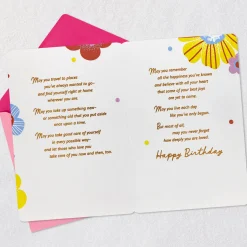 May you travel to places
you've always wanted to go—
and find yourself right at home
wherever you are.
May you take up something new—
or something old that you put down
once upon a time.
May you take good care of yourself
in every possible way—
and let those who love you
take care of you now and then, too.
May you remember
all the happiness you've known
and believe with all your heart
that some of your best days
are yet to come.
May you live each day
like you've only begun.
But most of all,
may you never forget
how deeply you are loved.
Happy Birthday